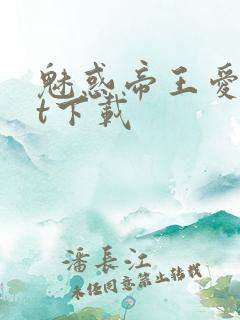 魅惑帝王爱
t下載
潘長江
未经同意禁止转载